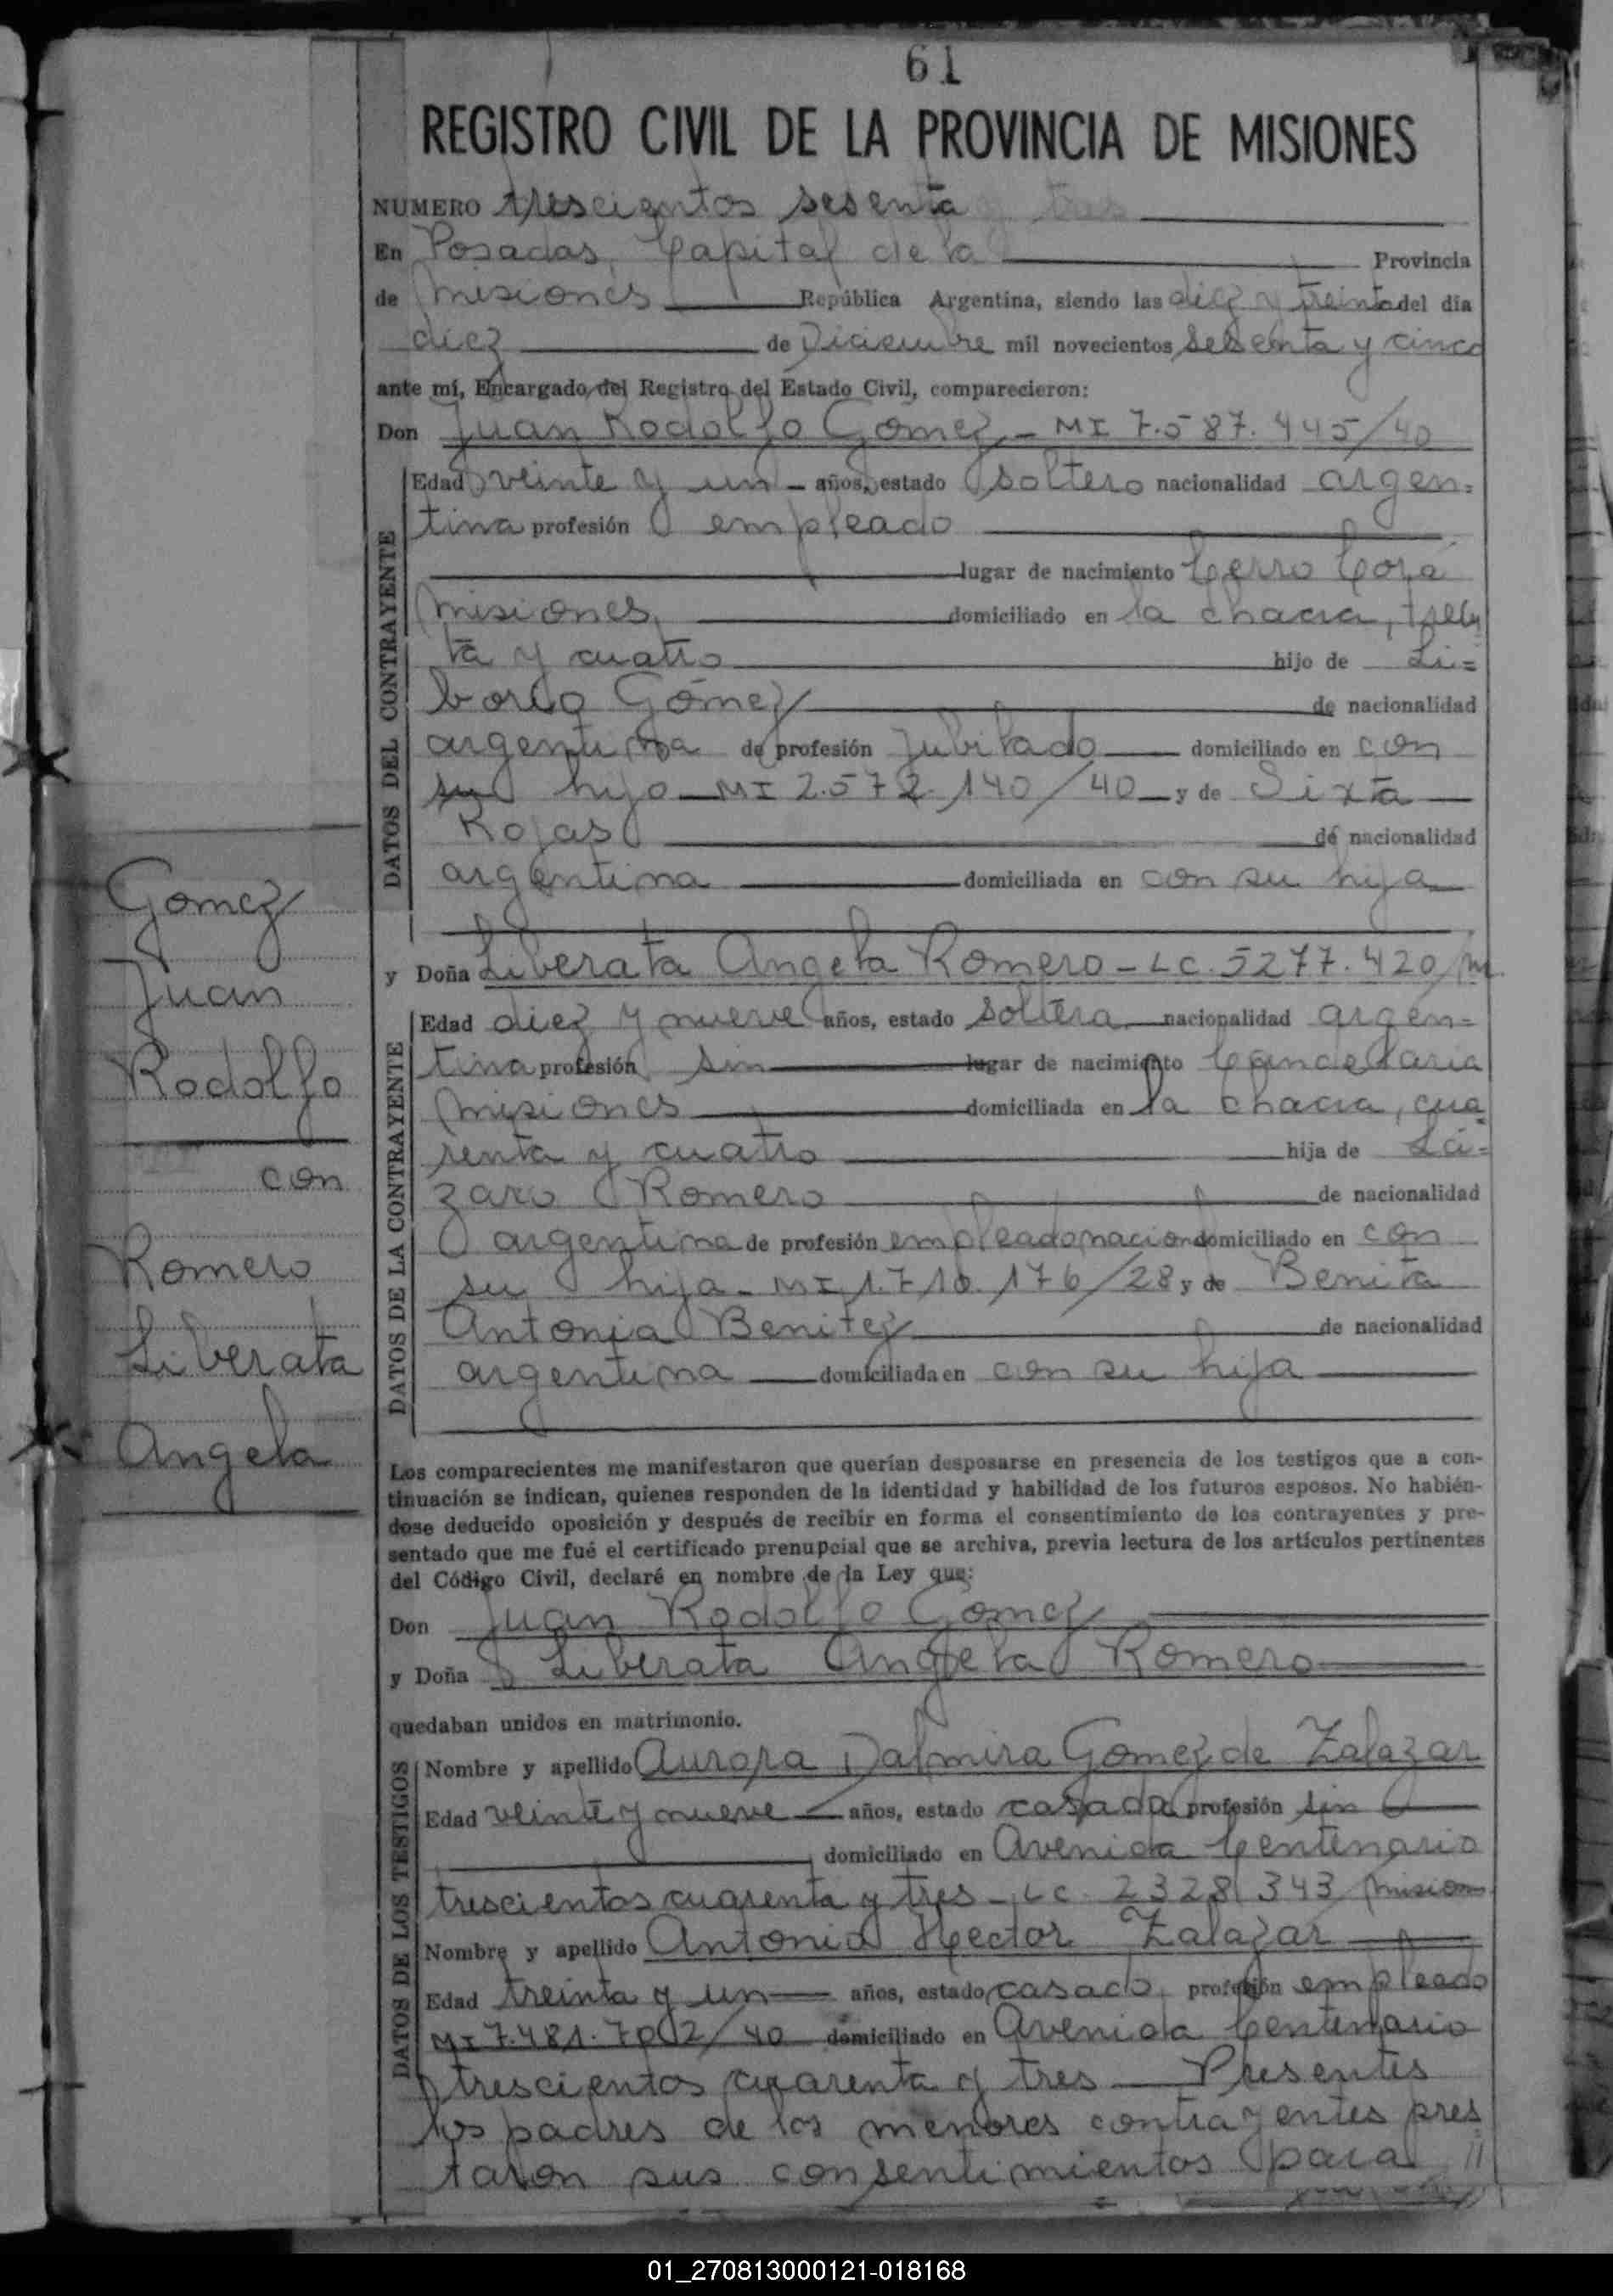 61
REGISTRO CIVIL DE LA PROVINCIA DE MISIONES
NUMERO trescientos sesenta y tres
En Posadas, Capital de la Provincia
de Misiones República Argentina, siendo las diez y treinta del día
diez de Diciembre mil novecientos sesenta y cinco
ante mí, Encargado del Registro del Estado Civil, comparecieron:
Don Juan Rodolfo Gomez - MI 7.587.445/40
DATOS DEL CONTRAYENTE
Edad veinte y un - años, estado soltero nacionalidad argen=
tina profesión empleado
lugar de nacimiento Cerro Corá
Misiones, domiciliado en la chacra, trein
ta y cuatro hijo de Li=
borio Gómez de nacionalidad
argentina de profesión Jubilado domiciliado en con
su hijo - MI 2.572.140/40 - y de Sixta
Rojas de nacionalidad
argentina domiciliada en con su hija
y Doña Liberata Angela Romero - LC. 5277.420/m
DATOS DE LA CONTRAYENTE
Edad diez y nueve años, estado soltera nacionalidad argen=
tina profesión sin lugar de nacimiento Candelaria
Misiones domiciliada en la chacra, cua
renta y cuatro hija de Lá=
zaro Romero de nacionalidad
argentina de profesión empleado nacion domiciliado en con
su hija - MI 1.710.176/28 y de Benita
Antonia Benitez de nacionalidad
argentina domiciliada en con su hija
Gomez
Juan
Rodolfo
con
Romero
Liberata
Angela
Los comparecientes me manifestaron que querían desposarse en presencia de los testigos que a con-
tinuación se indican, quienes responden de la identidad y habilidad de los futuros esposos. No habién-
dose deducido oposición y después de recibir en forma el consentimiento de los contrayentes y pre-
sentado que me fué el certificado prenupcial que se archiva, previa lectura de los artículos pertinentes
del Código Civil, declaré en nombre de la Ley que:
Don Juan Rodolfo Gomez
y Doña Liberata Angela Romero
quedaban unidos en matrimonio.
DATOS DE LOS TESTIGOS
Nombre y apellido Aurora Dalmira Gomez de Zalazar
Edad veinte y nueve años, estado casada profesión sin
domiciliado en Avenida Centenario
trescientos cuarenta y tres - LC. 2328343 Mision
Nombre y apellido Antonio Hector Zalazar
Edad treinta y un años, estado casado, profesión empleado
MI 7.481.702/40 domiciliado en Avenida Centenario
trescientos cuarenta y tres - Presentes
los padres de los menores contrayentes pres
taron sus consentimientos para //
01_270813000121-018168